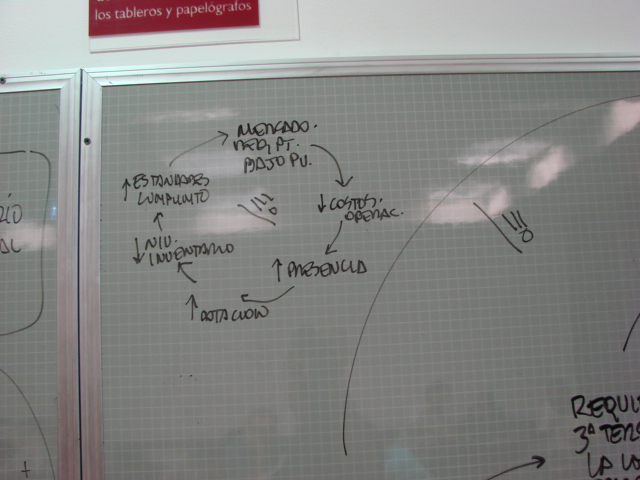 los tableros y papelógrafos
MERCADO.
NEQ, PT.
BAJO PU.
↓ COSTOS.
OPERAC.
↑ PRESENCIA
↑ ROTACION
↓ NIV.
INVENTARIO
↑ ESTANDARES
CUMPLIMTO
!!!
!!!
REQUI
3ª TER
LA